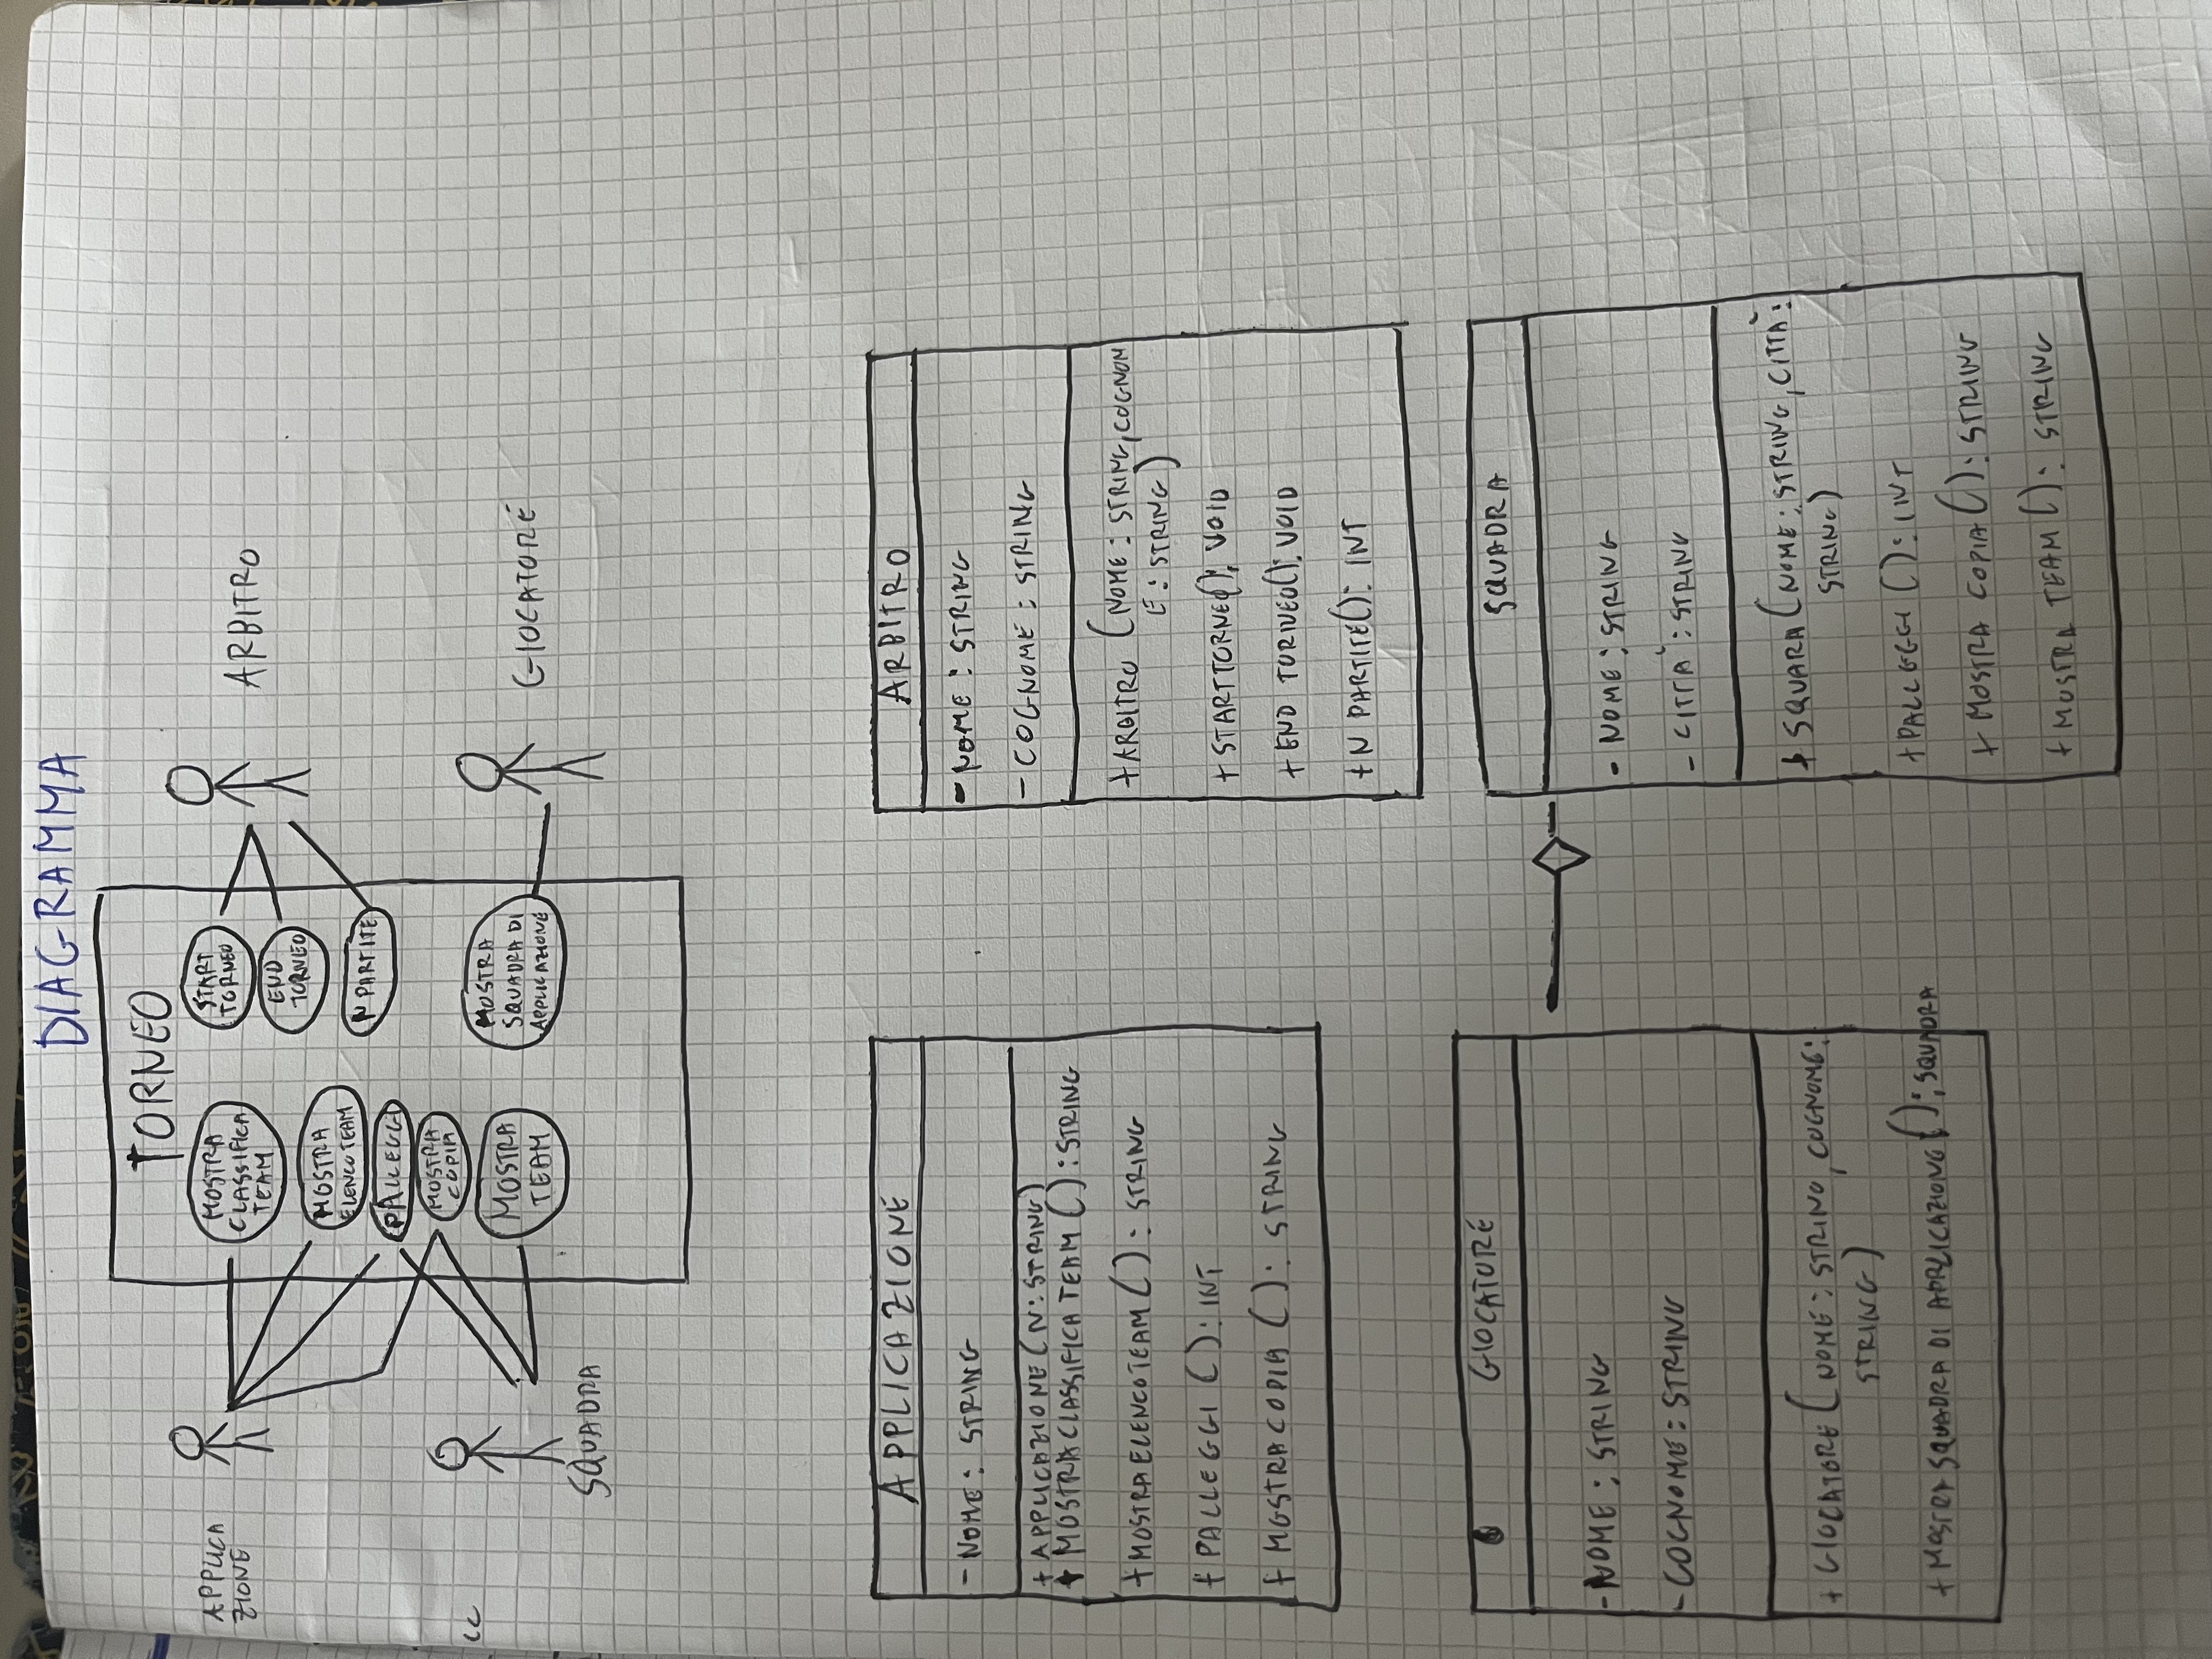 DIAGRAMMA
TORNEO
APPLICA
ZIONE
MOSTRA
CLASSIFICA
TEAM
MOSTRA
ELENCO TEAM
PALLEGGI
MOSTRA
COPIA
MOSTRA
TEAM
SQUADRA
START
TORNEO
END
TORNEO
N PARTITE
ARBITRO
MOSTRA
SQUADRA DI
APPLICAZIONE
GIOCATORE
APPLICAZIONE
- NOME : STRING
+ APPLICAZIONE (N: STRING)
+ MOSTRACLASSIFICA TEAM () : STRING
+ MOSTRAELENCOTEAM () : STRING
+ PALLEGGI () : INT
+ MOSTRACOPIA () : STRING
ARBITRO
- NOME : STRING
- COGNOME : STRING
+ ARBITRO (NOME : STRING, COGNOM
E : STRING)
+ STARTTORNEO(): VOID
+ END TORNEO(): VOID
+ N PARTITE(): INT
GIOCATORE
- NOME : STRING
- COGNOME : STRING
+ GIOCATORE (NOME : STRING, COGNOME:
STRING)
+ MOSTRA SQUADRA DI APPLICAZIONE () : SQUADRA
SQUADRA
- NOME : STRING
- CITTÀ : STRING
+ SQUARA (NOME : STRING, CITTÀ :
STRING)
+ PALLEGGI () : INT
+ MOSTRA COPIA () : STRING
+ MOSTRA TEAM () : STRING